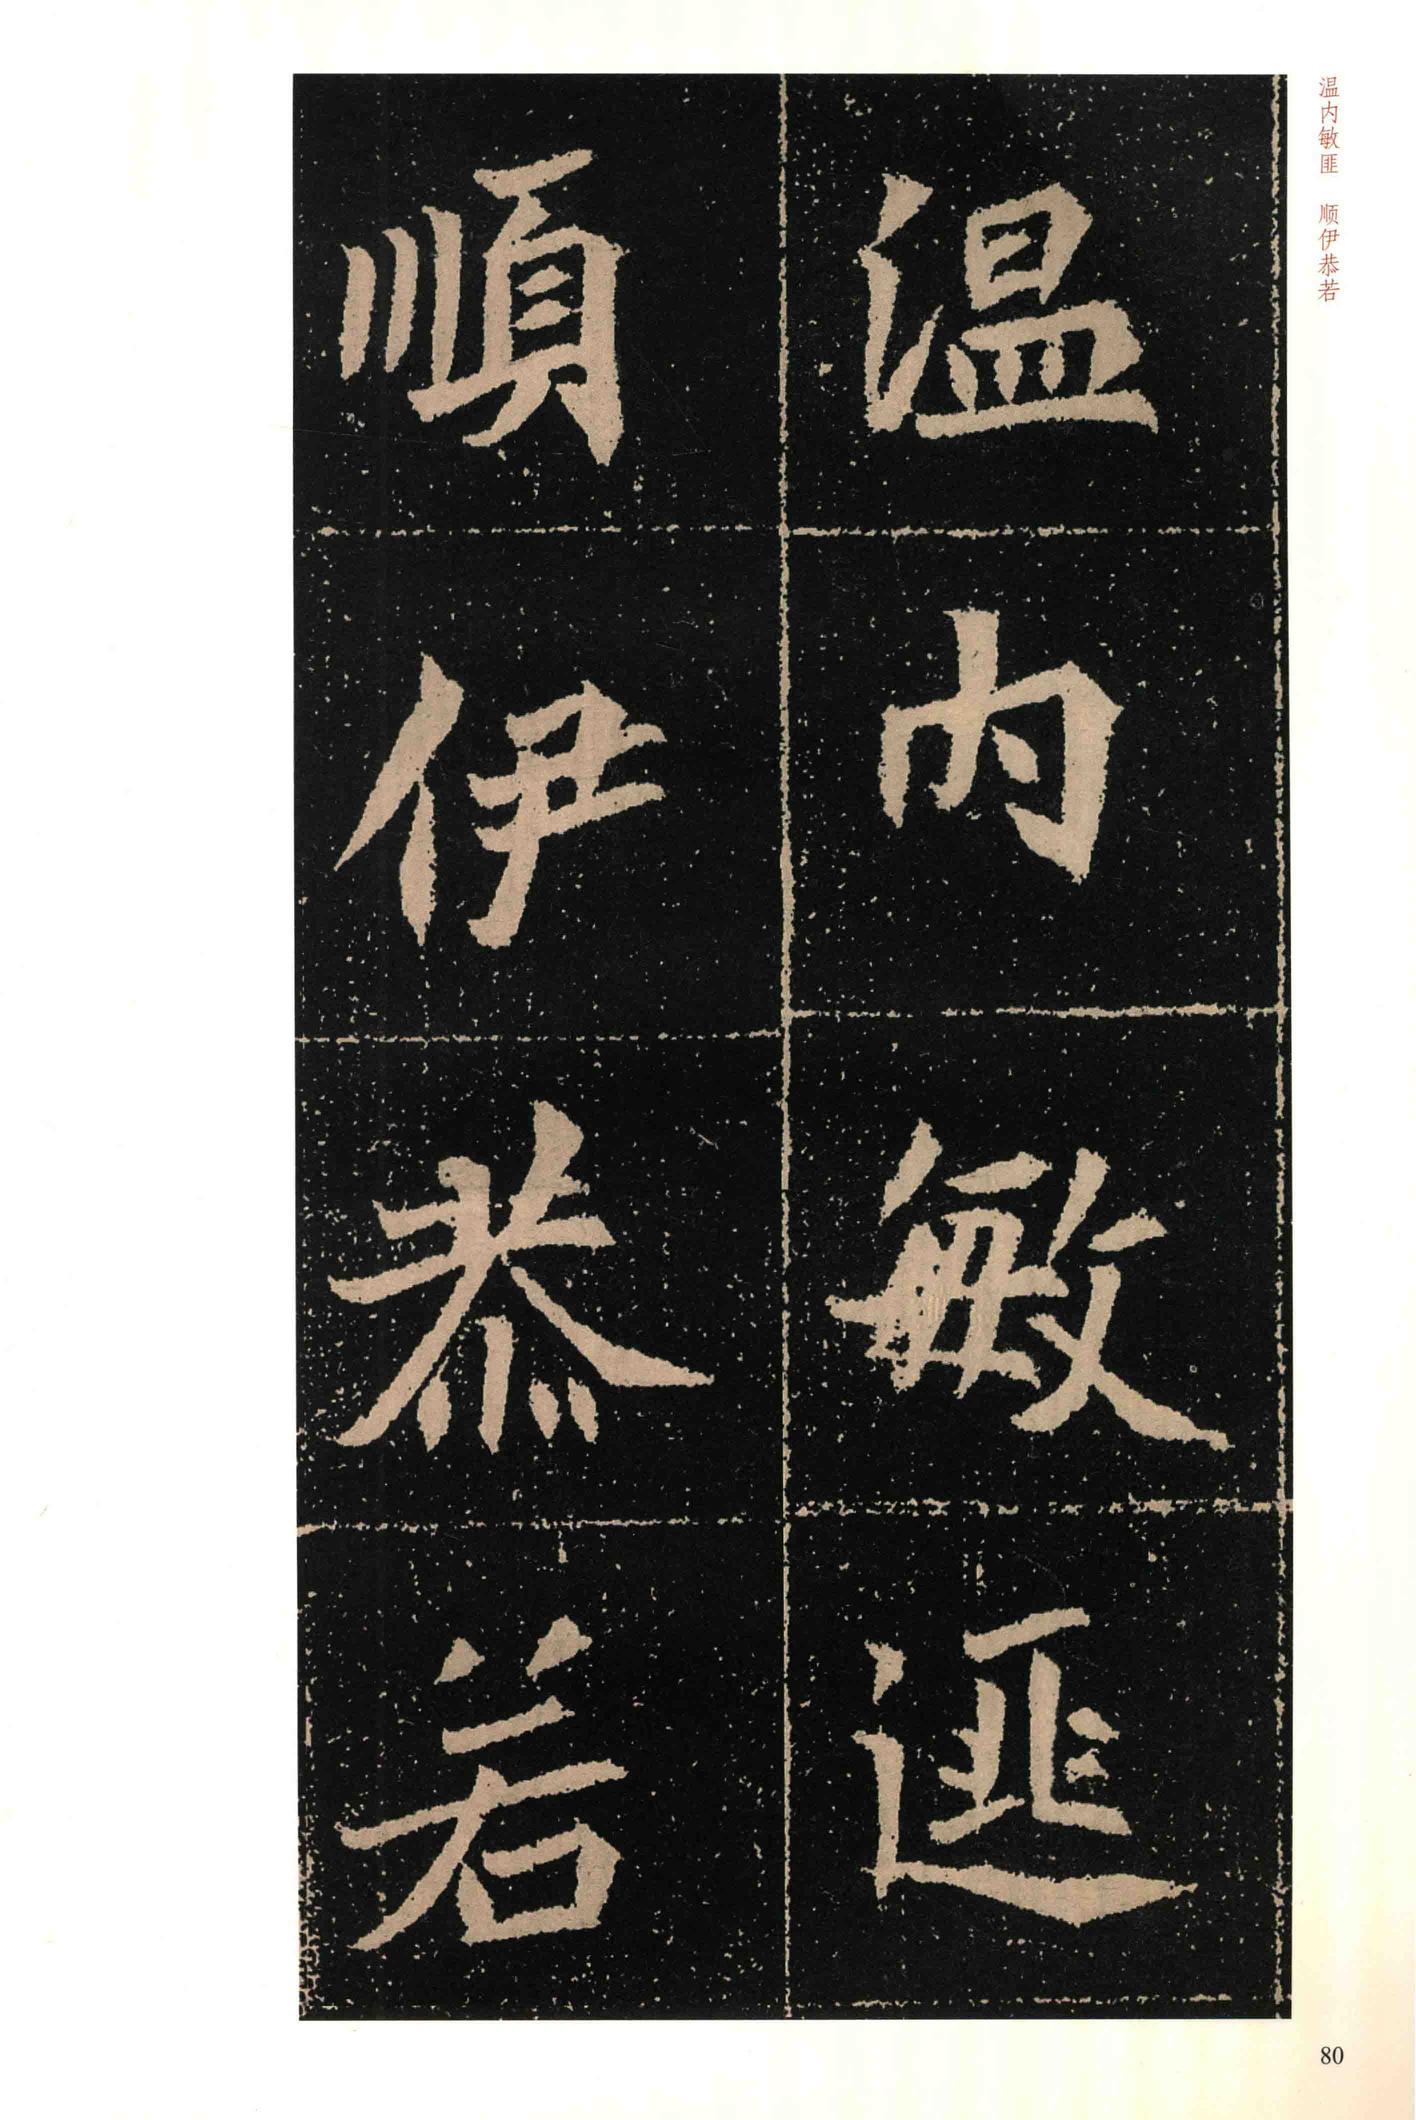 温内敏匪 顺伊恭若
温内敏匪
順伊恭若
80